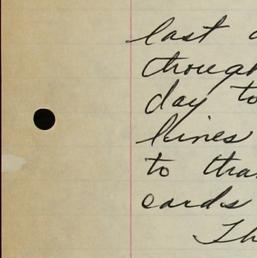 last
though
day to
lines
to tha
cards
Th